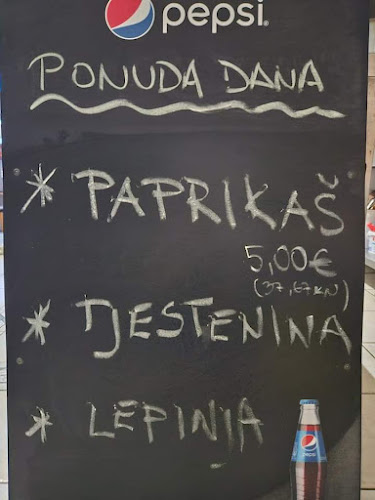 pepsi
PONUDA DANA
* PAPRIKAŠ
5,00€
(37,67KN)
* TJESTENINA
* LEPINJA
pepsi